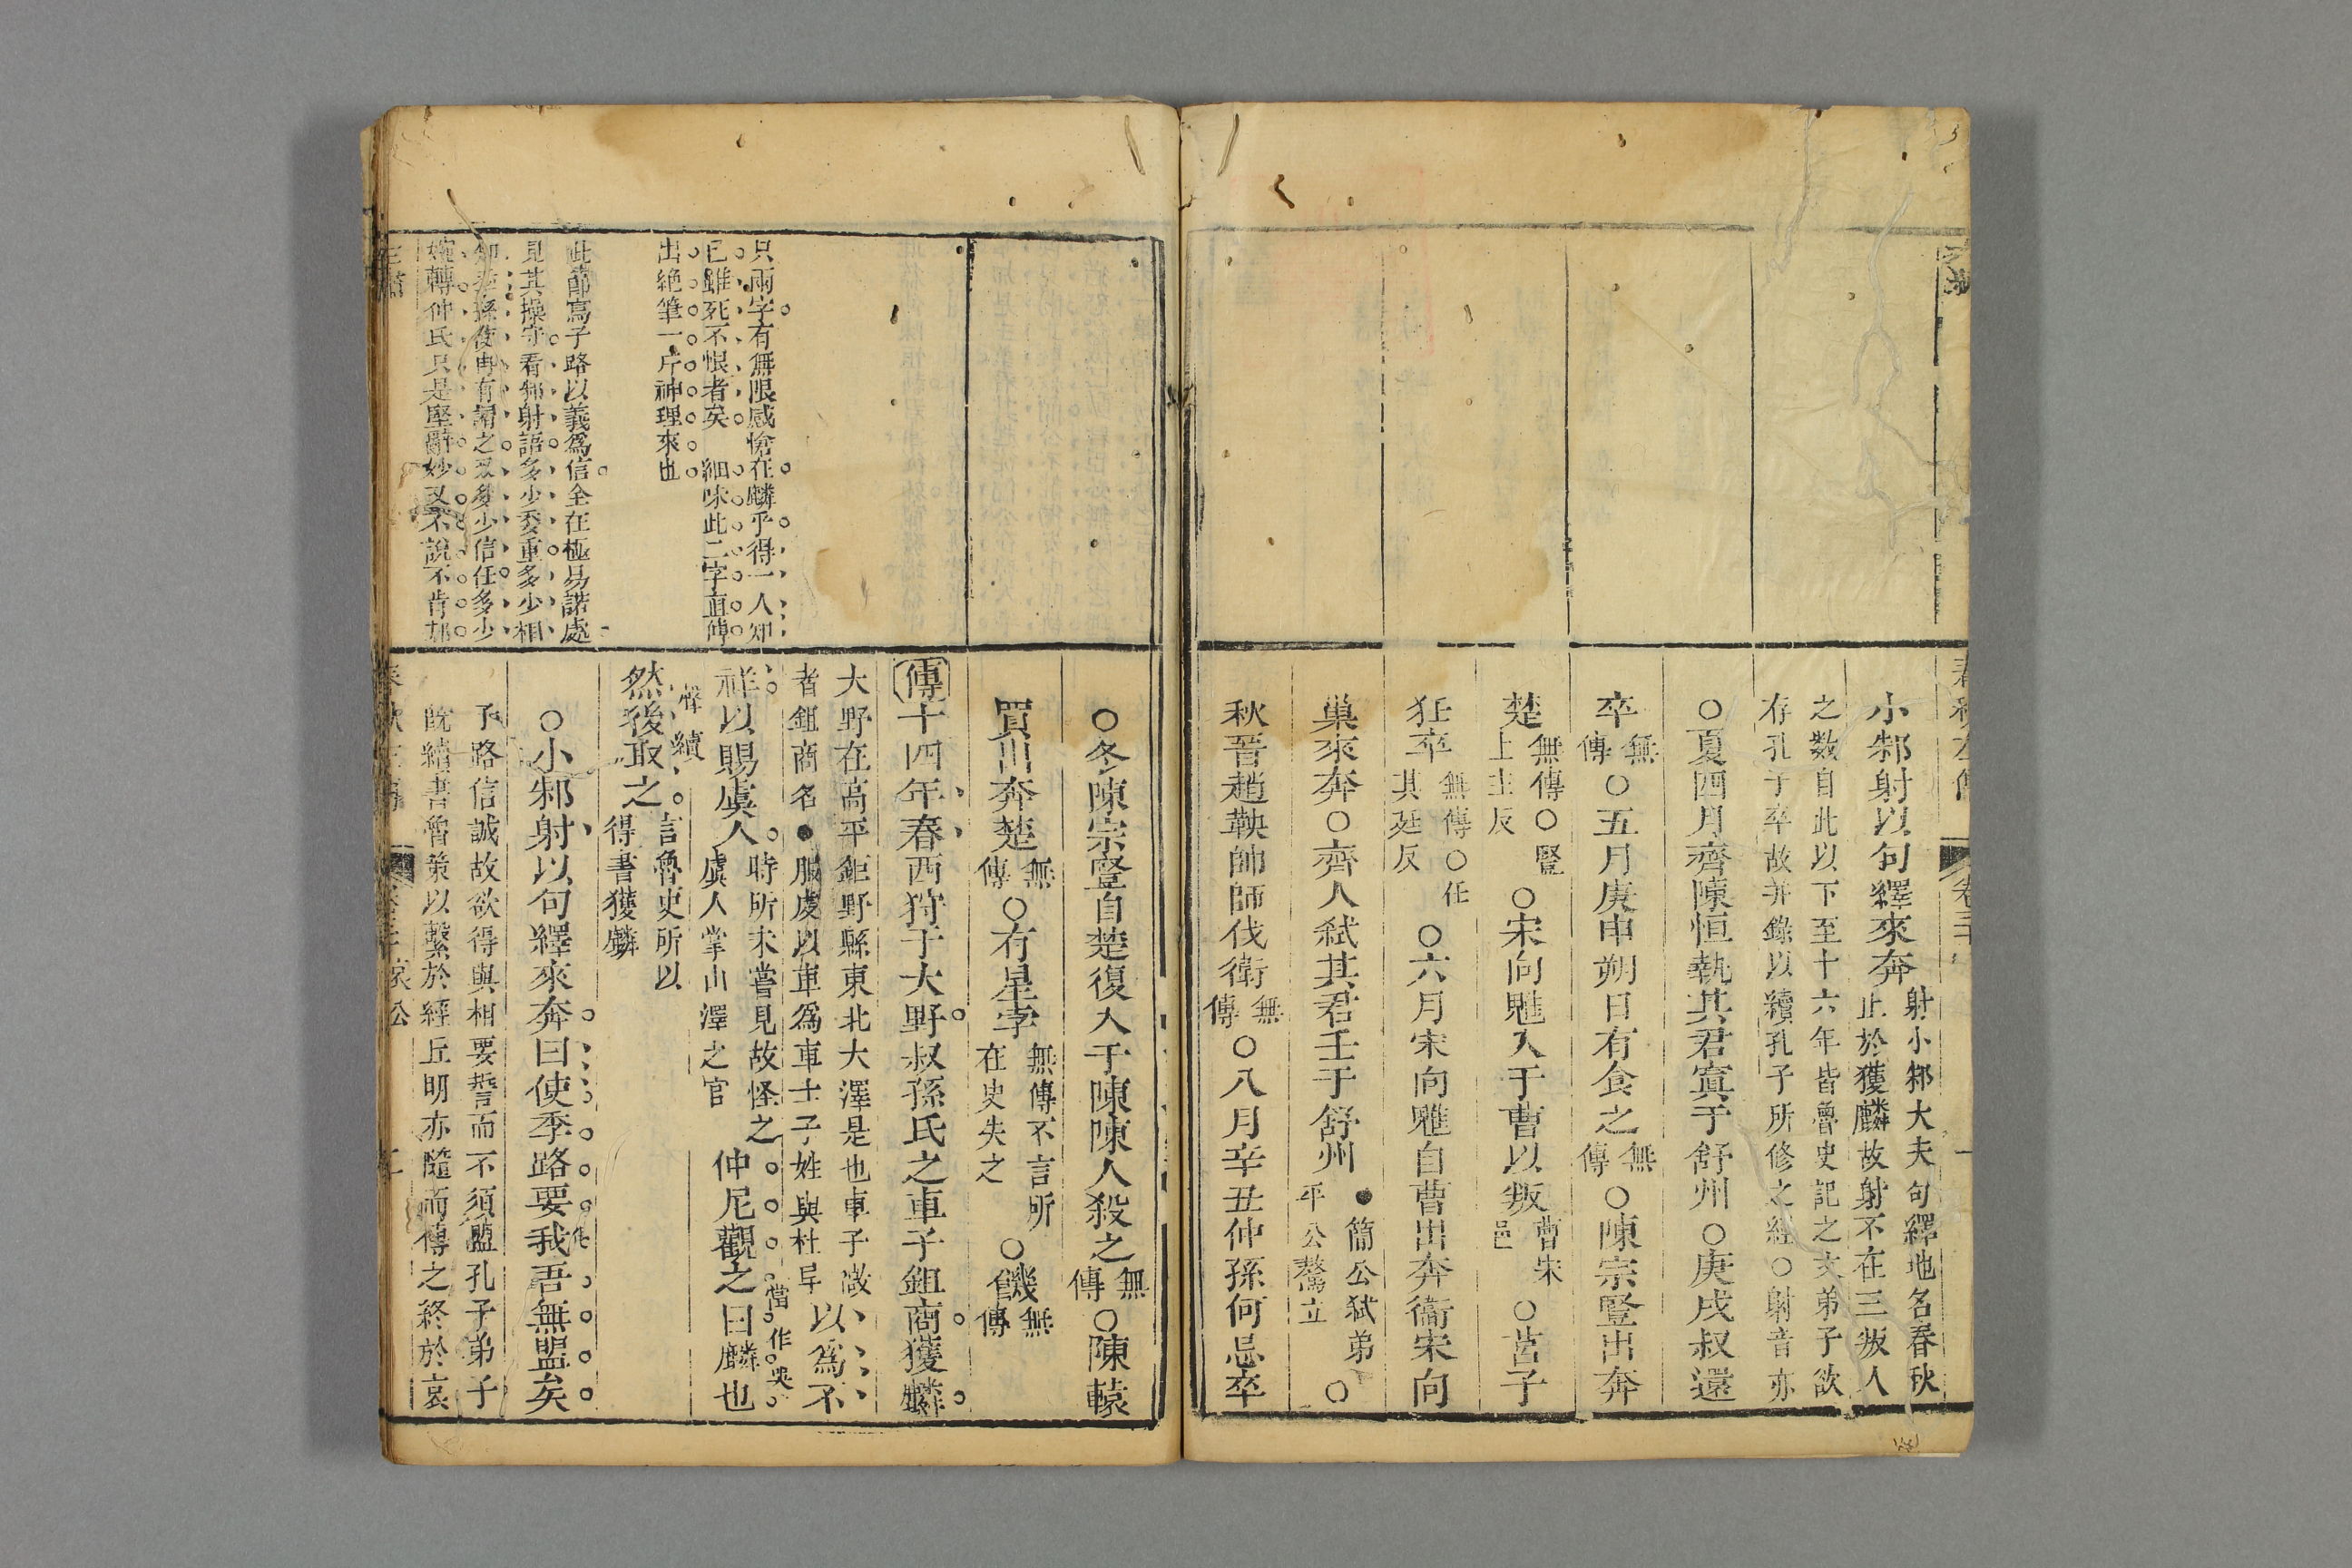 小邾射以句繹來奔射小邾大夫句繹地名春秋
止於獲麟故射不在三叛人
之數自此以下至十六年皆魯史記之文弟子欲
存孔子卒故并錄以續孔子所修之經○射音亦
○夏四月齊陳恒執其君寘于舒州○庚戌叔還
卒無傳○五月庚申朔日有食之無傳○陳宗豎出奔
楚無傳○豎上主反○宋向魋入于曹以叛曹宋邑○莒子
狂卒無傳○任其廷反○六月宋向魋自曹出奔衞宋向
巢來奔○齊人弒其君壬于舒州●簡公弒弟平公驁立○
秋晉趙鞅帥師伐衛無傳○八月辛丑仲孫何忌卒
○冬陳宗豎自楚復入于陳陳人殺之無傳○陳轅
買出奔楚無傳○有星孛無傳不言所在史失之○饑無傳
傳十四年春西狩于大野叔孫氏之車子鉏商獲麟
大野在高平鉅野縣東北大澤是也車子微
者鉏商名●服虔以車爲車士子姓與杜异以爲不
祥以賜虞人時所未嘗見故怪之虞人掌山澤之官仲尼觀之曰麟也
然後取之言魯史所以得書獲麟
○小邾射以句繹來奔曰使季路要我吾無盟矣
子路信誠故欲得與相要誓而不須盟孔子弟子
既續書魯策以繫於經丘明亦隨而傳之終於哀
只兩字有無限感愴在麟乎得一人知
已雖死不恨者矣 細味此二字直傳
出絶筆一片神理來也
此節寫子路以義爲信全在極易諾處
見其操守看邾射語多少委重多少相
知季孫使冉有謂之又多少信任多少
婉轉仲氏只是堅辭妙又不說不肯却